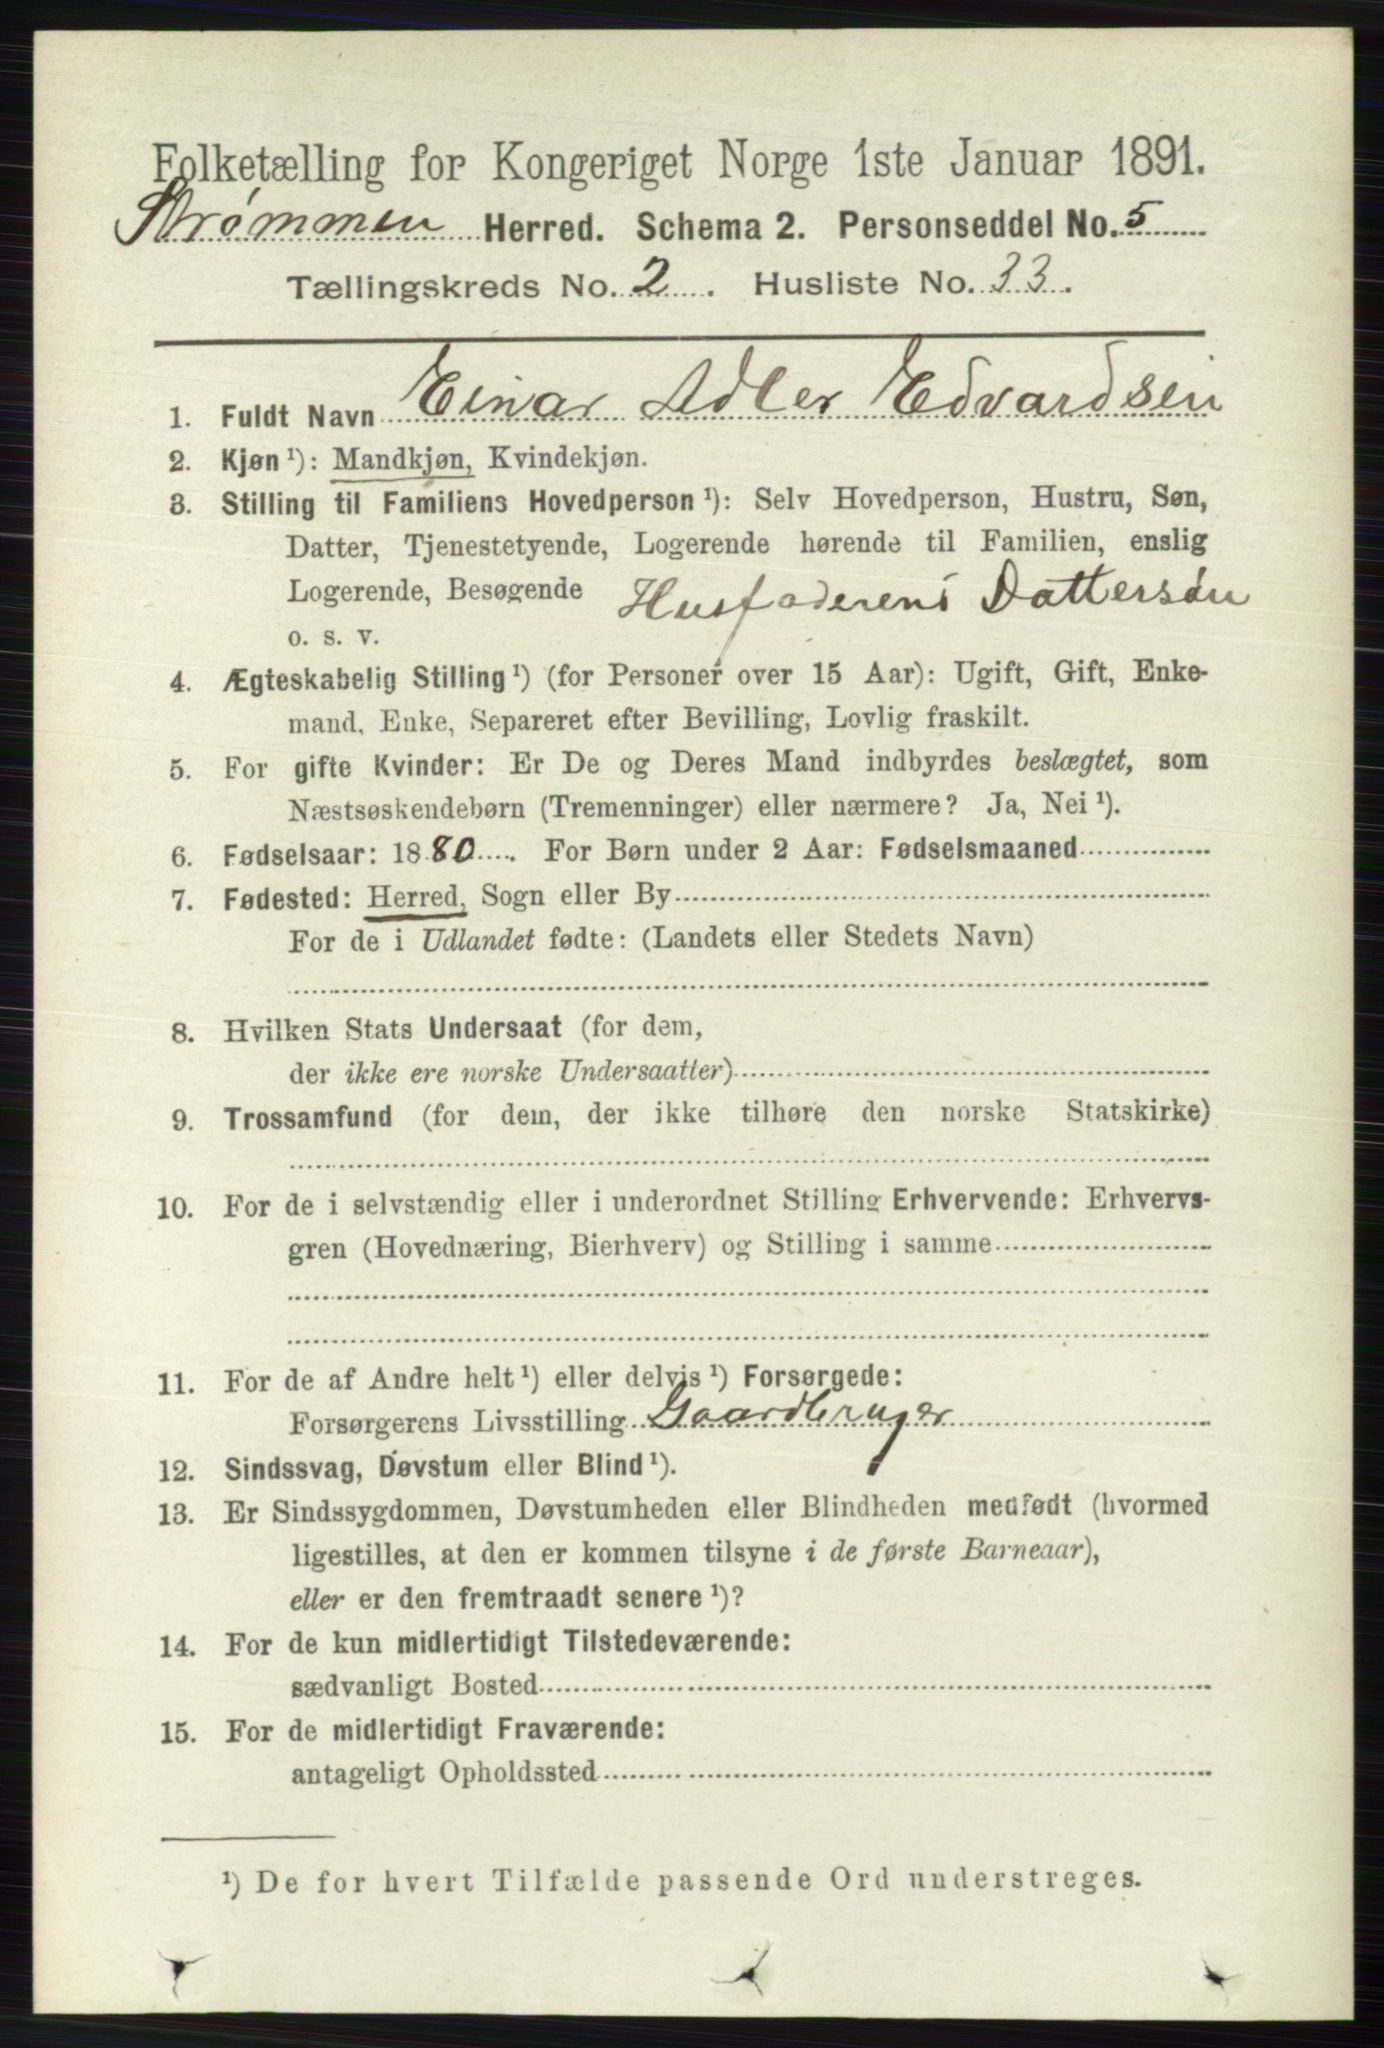 Folketælling for Kongeriget Norge 1ste Januar 1891.
Strømmen Herred. Schema 2. Personseddel No. 5
Tællingskreds No. 2. Husliste No. 33.
1. Fuldt Navn Einar Adler Edvardsen
2. Kjøn¹): Mandkjøn, Kvindekjøn.
3. Stilling til Familiens Hovedperson¹): Selv Hovedperson, Hustru, Søn,
Datter, Tjenestetyende, Logerende hørende til Familien, enslig
Logerende, Besøgende Husfaderens Dattersøn
o. s. v.
4. Ægteskabelig Stilling¹) (for Personer over 15 Aar): Ugift, Gift, Enke-
mand, Enke, Separeret efter Bevilling, Lovlig fraskilt.
5. For gifte Kvinder: Er De og Deres Mand indbyrdes beslægtet, som
Næstsøskendebørn (Tremenninger) eller nærmere? Ja, Nei¹).
6. Fødselsaar: 1880. For Børn under 2 Aar: Fødselsmaaned
7. Fødested: Herred, Sogn eller By
For de i Udlandet fødte: (Landets eller Stedets Navn)
8. Hvilken Stats Undersaat (for dem,
der ikke ere norske Undersaatter)
9. Trossamfund (for dem, der ikke tilhøre den norske Statskirke)
10. For de i selvstændig eller i underordnet Stilling Erhvervende: Erhvervs-
gren (Hovednæring, Bierhverv) og Stilling i samme
11. For de af Andre helt¹) eller delvis¹) Forsørgede:
Forsørgerens Livsstilling Gaardbruger
12. Sindssvag, Døvstum eller Blind¹).
13. Er Sindssygdommen, Døvstumheden eller Blindheden medfødt (hvormed
ligestilles, at den er kommen tilsyne i de første Barneaar),
eller er den fremtraadt senere¹)?
14. For de kun midlertidigt Tilstedeværende:
sædvanligt Bosted
15. For de midlertidigt Fraværende:
antageligt Opholdssted
¹) De for hvert Tilfælde passende Ord understreges.